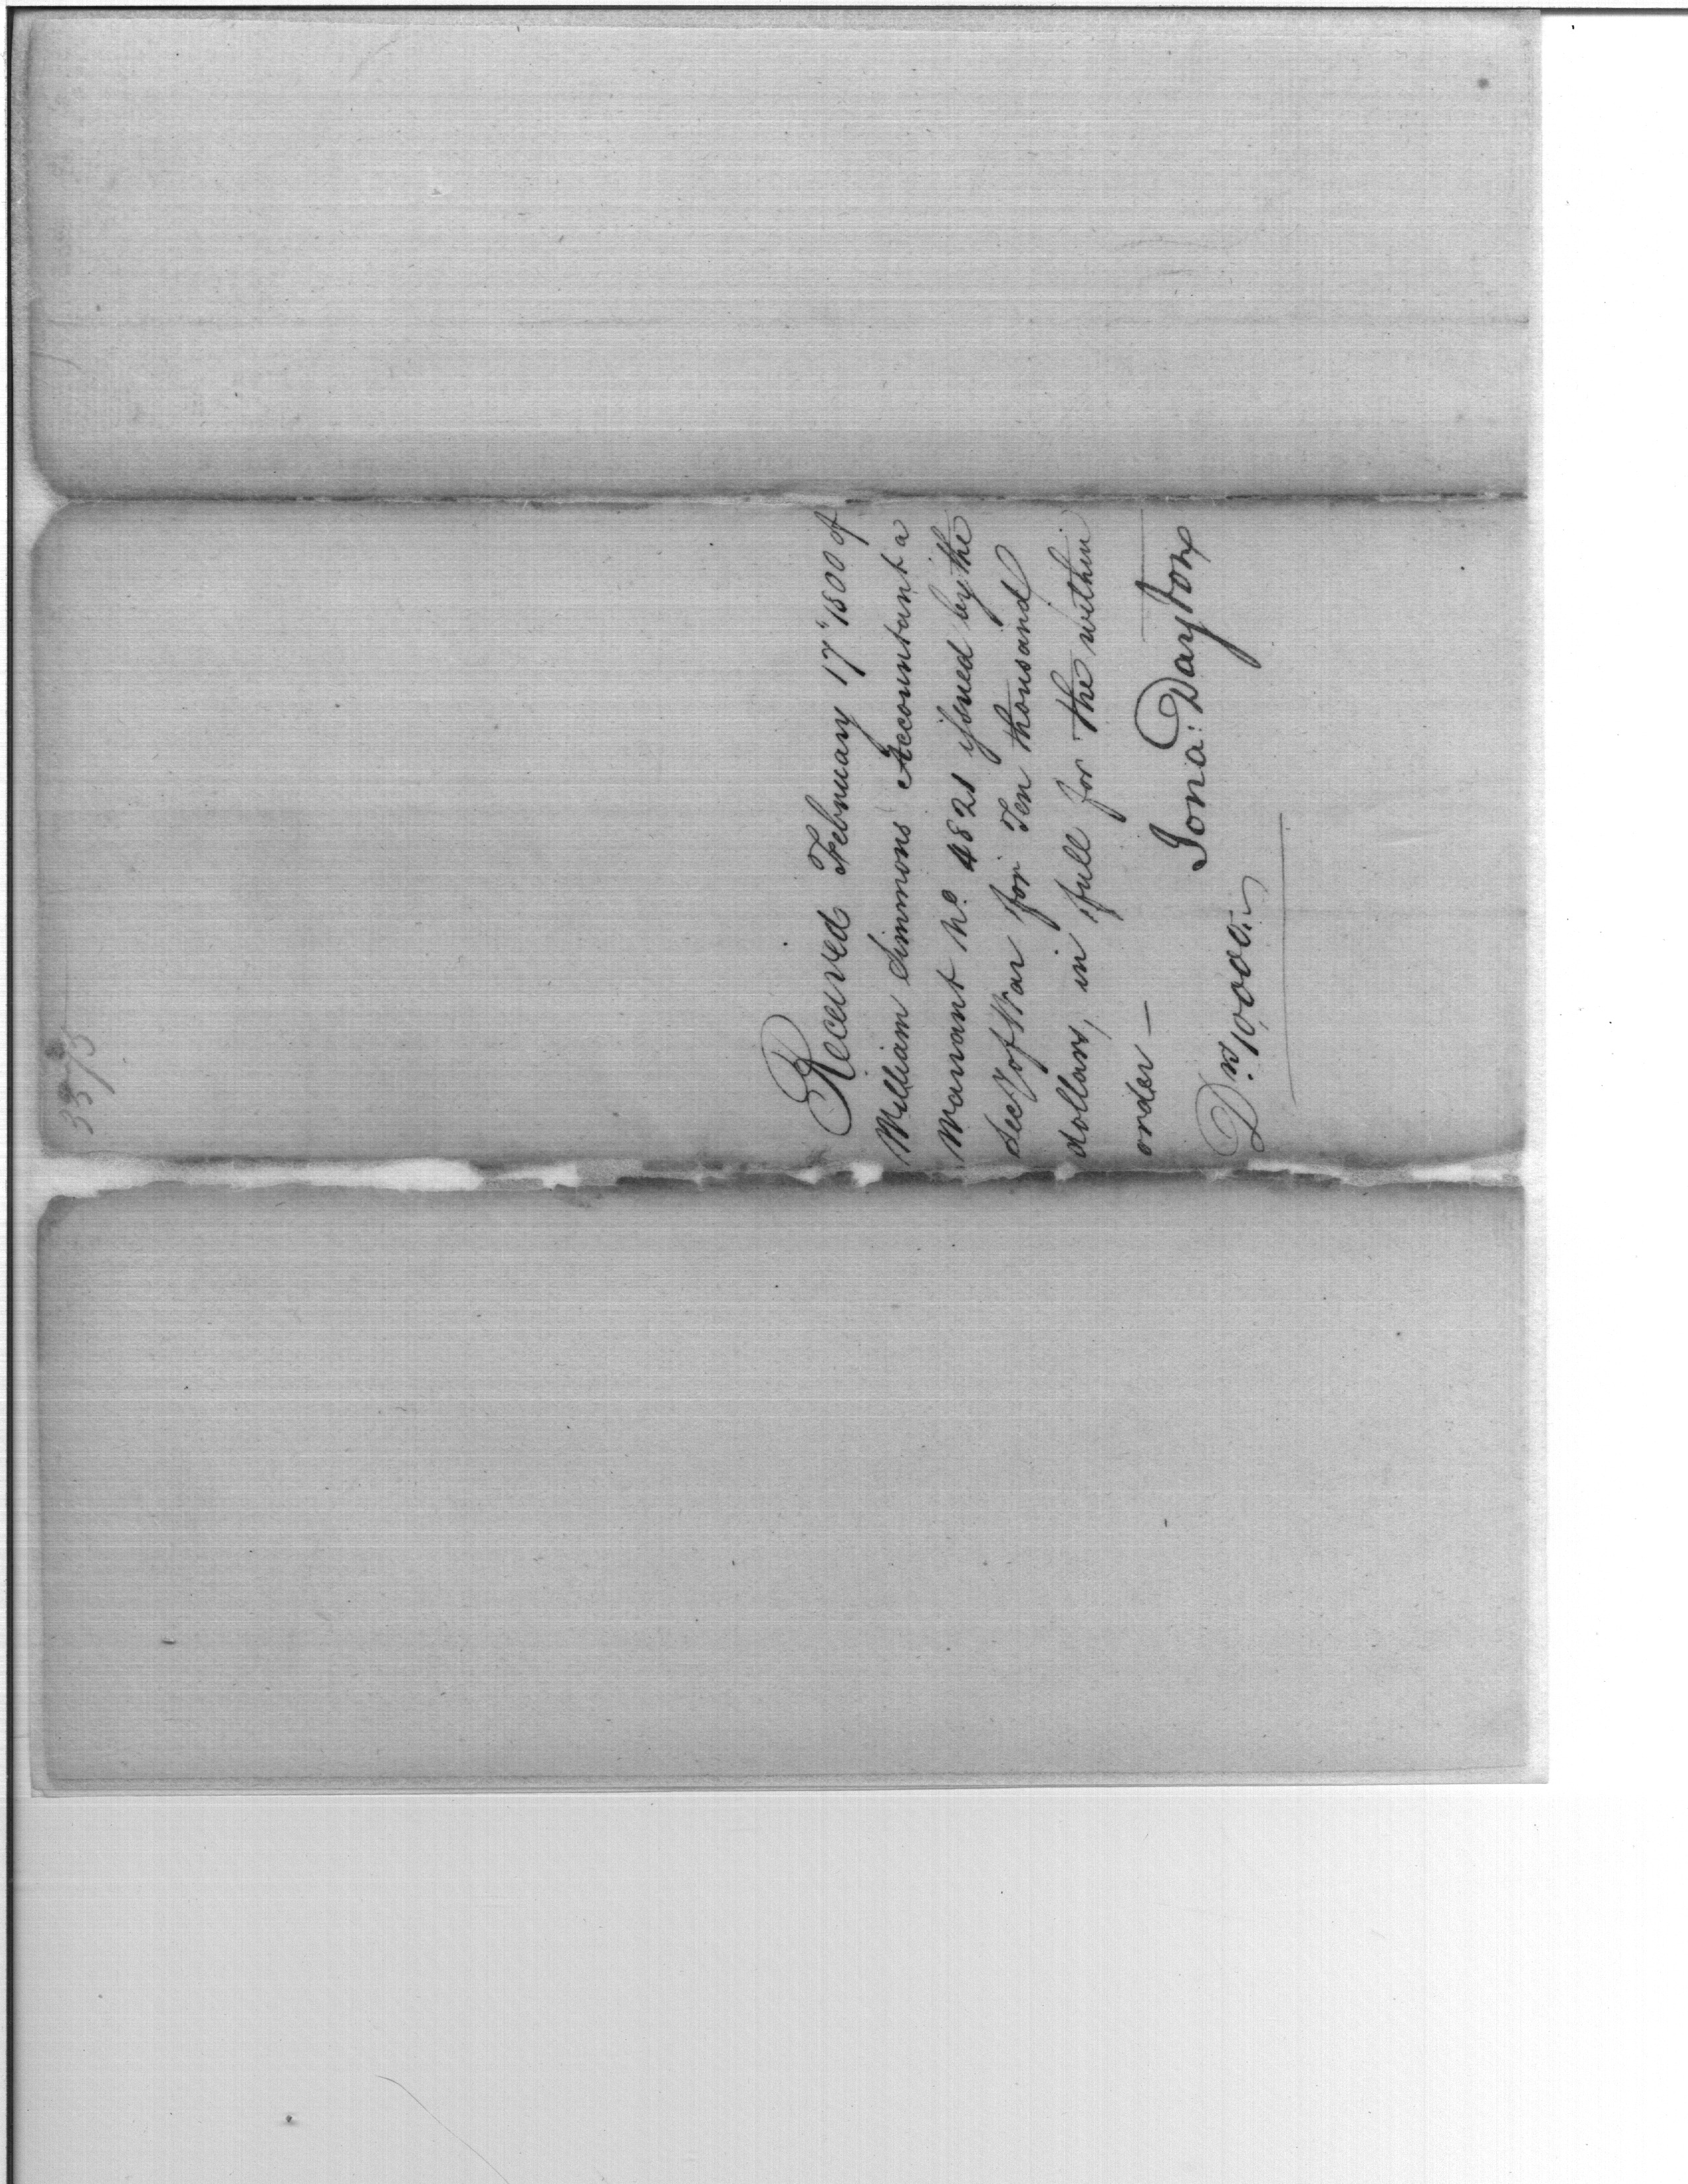 Received February 17th 1800 of
William Simmons Accountant a
Warrant No. 4821 issued by the
Secy of War for Ten thousand
dollars, in full for the within
order —
Jona: Dayton
Drs. 10,000.